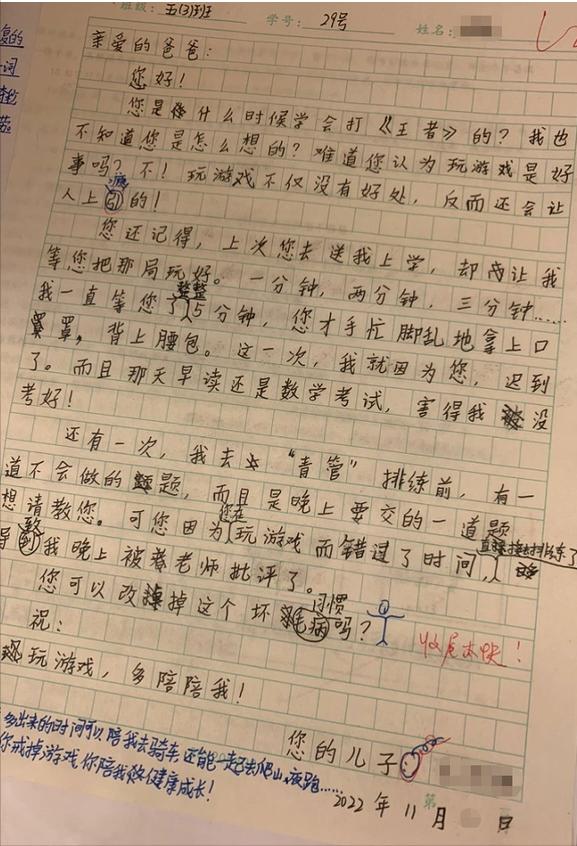 班级：五(3)班 学号：29号 姓名：
亲爱的爸爸：
您好！
您是什么时候学会打《王者》的？我也
不知道您是怎么想的？难道您认为玩游戏是好
事吗？不！玩游戏不仅没有好处，反而还会让
人上瘾的！
您还记得，上次您去送我上学，却让我
等您把那局玩好。一分钟，两分钟，三分钟……
我一直等您整整15分钟，您才手忙脚乱地拿上口
罩，背上腰包。这一次，我就因为您，迟到
了。而且那天早读还是数学考试，害得我没
考好！
还有一次，我去“青管”排练前，有一
道不会做的题，而且是晚上要交的一道题
想请教您。可您因为您在玩游戏而错过了时间，
导致我晚上被老师批评了。
您可以改掉这个坏习惯吗？
收尾太快！
祝：
玩游戏，多陪陪我！
多出来的时间可以陪我去骑车还能一起去爬山，夜跑……
你戒掉游戏你陪我健康成长！
您的儿子
2022年11月 日